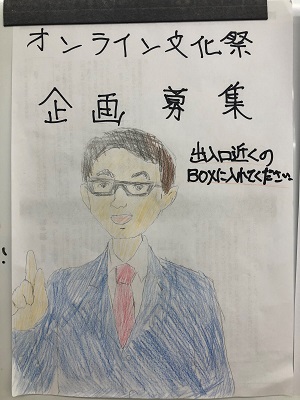 オンライン文化祭
企画募集
出入口近くの
BOXに入れてください